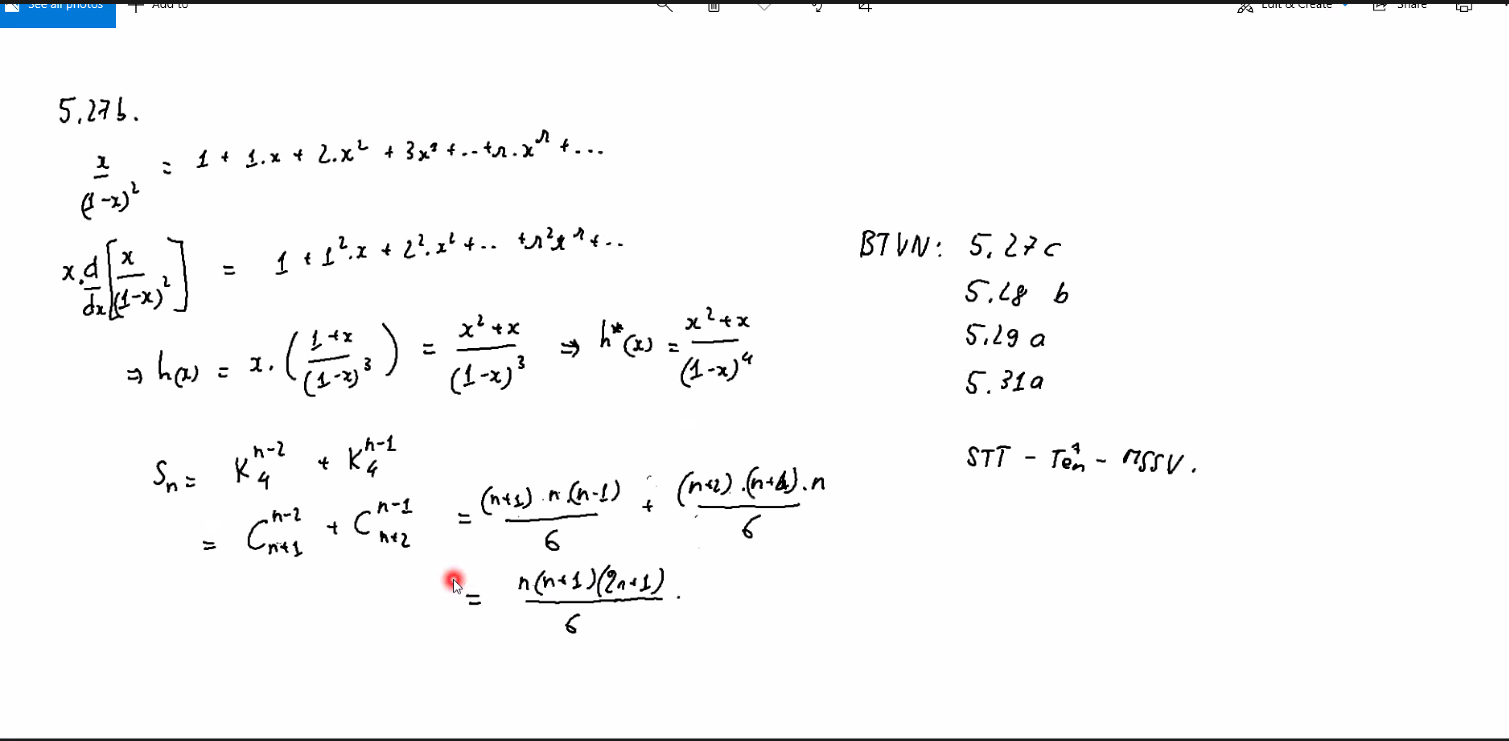 See all photos
Add to
Edit & Create
Share
5.27b.
x/(1-x)² = 1 + 1.x + 2.x² + 3x³ + .. + r.x^r + ...
x.d/dx[x/(1-x)²] = 1 + 1².x + 2².x² + .. + r²x^r + ..
⇒ h(x) = x.((1+x)/(1-x)³) = (x²+x)/(1-x)³ ⇒ h*(x) = (x²+x)/(1-x)⁴
S_n = K_4^{n-2} + K_4^{n-1}
= C_{n+1}^{n-2} + C_{n+2}^{n-1} = ((n+1).n.(n-1))/6 + ((n+2).(n+1).n)/6
= (n(n+1)(2n+1))/6.
BTVN: 5.27c
5.28 b
5.29 a
5.31a
STT - Tên - MSSV.